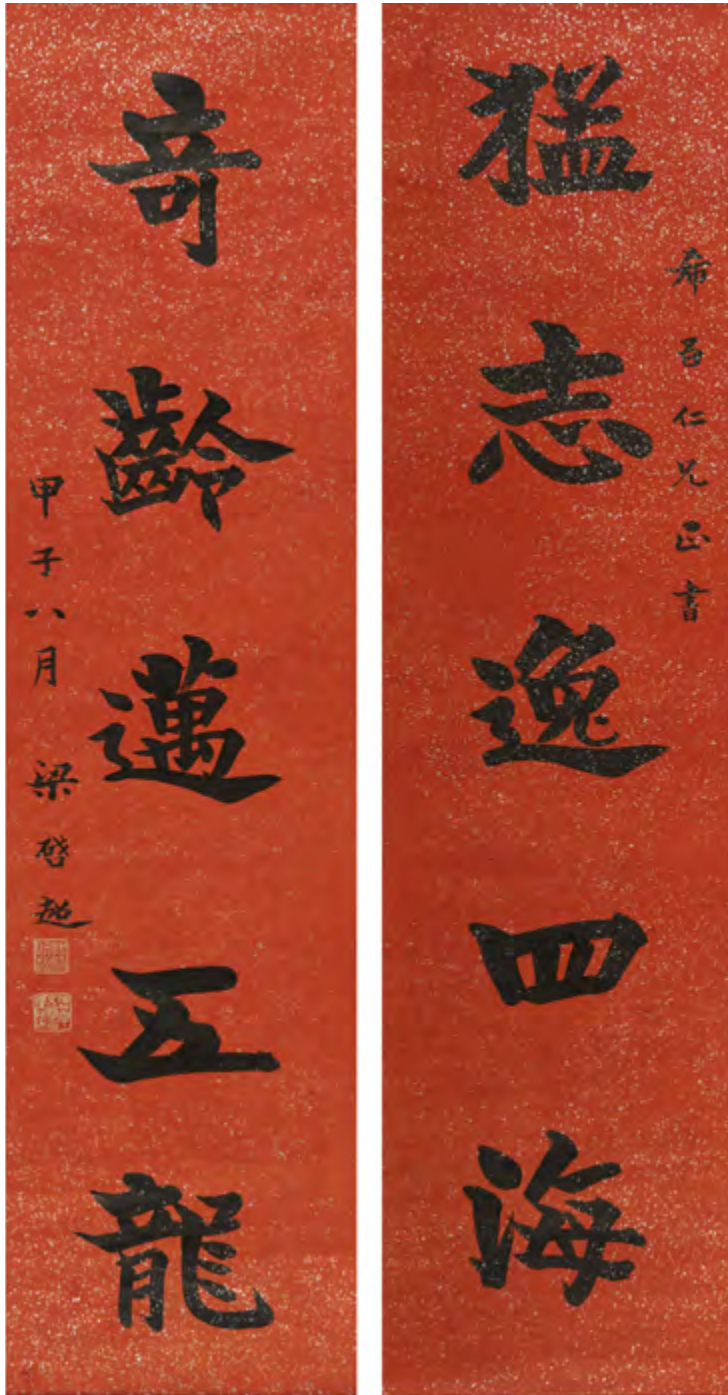 猛志逸四海
希百仁兄正書
奇齡邁五龍
甲子八月 梁啓超